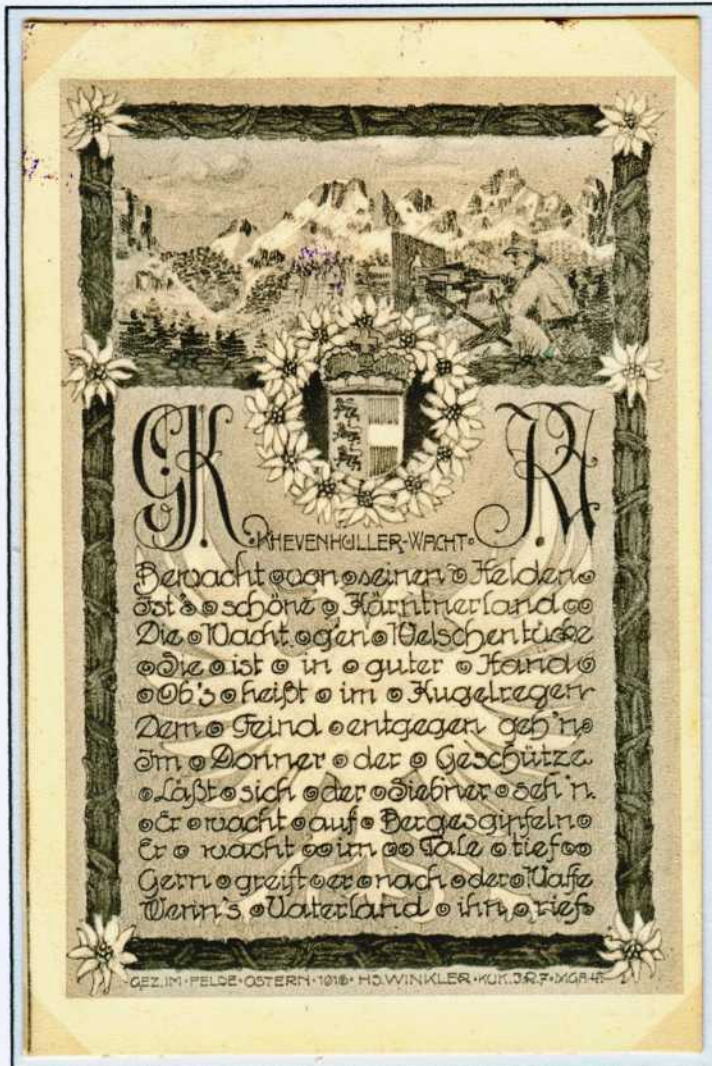 KHEVENHÜLLER-WACHT
Bewacht von seinen Helden
Ist's schöne Kärntnerland
Die Wacht g'en Welschentücke
Sie ist in guter Hand
Ob's heißt im Kugelregen
Dem Feind entgegen geh'n
Im Donner der Geschütze
Läßt sich der Siebner seh'n.
Er wacht auf Bergesgipfeln
Er wacht im Tale tief
Gern greift er nach der Waffe
Wenn's Vaterland ihn rief
GEZ. IM FELDE OSTERN 1916 HS. WINKLER K.U.K. J.R. 7